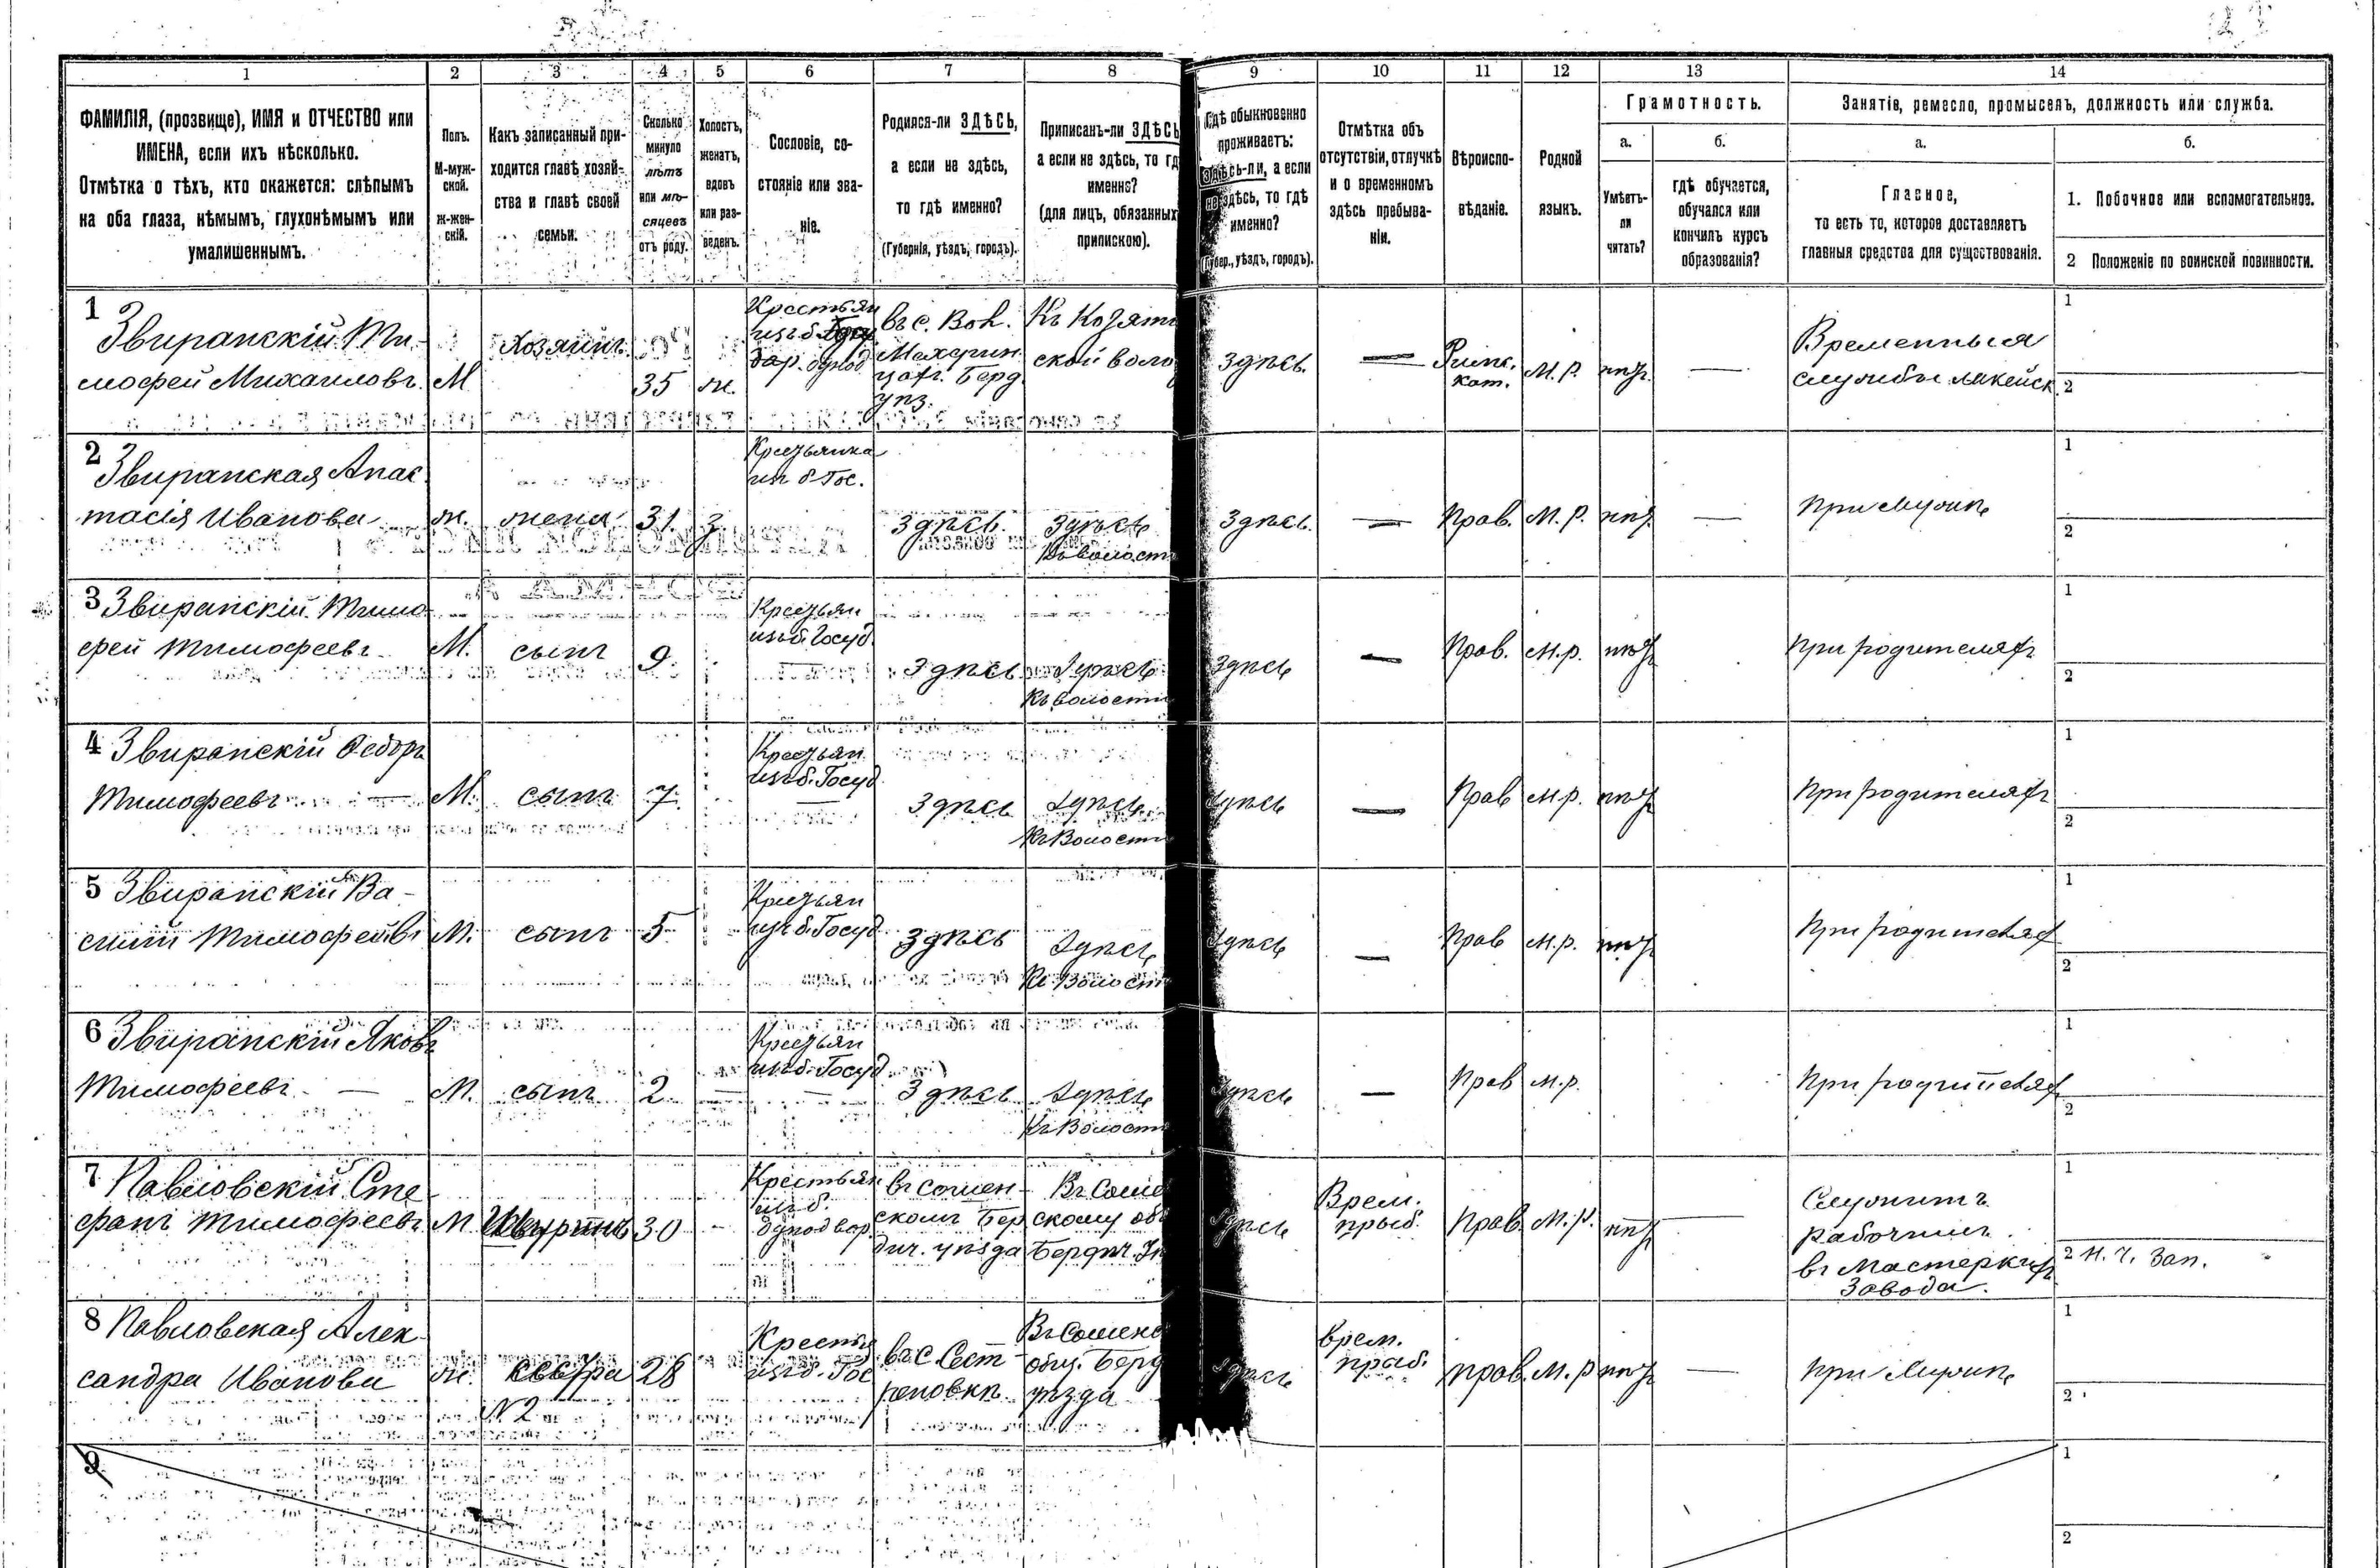 1 2 3 4 5 6 7 8 9 10 11 12 13 14
ФАМИЛІЯ, (прозвище), ИМЯ и ОТЧЕСТВО или
ИМЕНА, если ихъ нѣсколько.
Отмѣтка о тѣхъ, кто окажется: слѣпымъ
на оба глаза, нѣмымъ, глухонѣмымъ или
умалишеннымъ.
Полъ.
М-муж-
ской.
ж-жен-
скій.
Какъ записанный при-
ходится главѣ хозяй-
ства и главѣ своей
семьи.
Сколько
минуло
лѣтъ
или мѣ-
сяцевъ
отъ роду.
Холостъ,
женатъ,
вдовъ
или раз-
веденъ.
Сословіе, со-
стояніе или зва-
ніе.
Родился-ли ЗДѢСЬ,
а если не здѣсь,
то гдѣ именно?
(Губернія, уѣздъ, городъ).
Приписанъ-ли ЗДѢСЬ
а если не здѣсь, то гд
именно?
(для лицъ, обязанных
припискою).
Гдѣ обыкновенно
проживаетъ:
здѣсь-ли, а если
не здѣсь, то гдѣ
именно?
(Губер., уѣздъ, городъ).
Отмѣтка объ
отсутствіи, отлучкѣ
и о временномъ
здѣсь пребыва-
ніи.
Вѣроиспо-
вѣданіе.
Родной
языкъ.
Грамотность.
а.
Умѣетъ-
ли
читать?
б.
гдѣ обучается,
обучался или
кончилъ курсъ
образованія?
Занятіе, ремесло, промыселъ, должность или служба.
а.
Главное,
то есть то, которое доставляетъ
главныя средства для существованія.
б.
1. Побочное или вспомогательное.
2 Положеніе по воинской повинности.
1 Звиранскій Ти-
мофей Михаиловъ.
М
Хозяинъ
35
ж.
Крестьян
изъ б. Госу
дар.
въ с. Вол.
Махарин
Берд
уѣз.
Къ Козяти
ской воло
здѣсь
—
Римс.
кат.
М. Р.
нѣтъ
—
Временныя
службы лакейск.
1
2
2 Звиранская Анас
тасія Иванова
ж.
жена
31.
з.
Крестьянка
изъ б. Гос.
здѣсь
здѣсь
Къ волости
здѣсь
—
Прав.
М. Р.
нѣтъ
—
при мужѣ
1
2
3 Звиранскій Тимо
фей Тимофеевъ
М.
сынъ
9.
Крестьян
изъ б. Госуд
здѣсь
здѣсь
Къ волости
здѣсь
—
Прав.
М. р.
нѣтъ
При родителяхъ
1
2
4 Звиранскій Ѳедоръ
Тимофеевъ —
М.
сынъ
7.
Крестьян
изъ б. Госуд
—
здѣсь
здѣсь
Къ Волости
здѣсь
—
Прав
М. р.
нѣтъ
При родителяхъ
1
2
5 Звиранскій Ва-
силій Тимофеевъ
М.
сынъ
5
Крестьян
изъ б. Госуд
здѣсь
здѣсь
Къ Волости
здѣсь
—
Прав
М. р.
нѣтъ
При родителях
1
2
6 Звиранскій Яковъ
Тимофеевъ —
М.
сынъ
2.
—
Крестьян
изъ б. Госуд
—
здѣсь
здѣсь
Къ Волости
здѣсь
—
Прав
М. р.
При родителях
1
2
7 Павловскій Сте
фанъ Тимофеевъ
М
30
-
Крестьян
изъ б.
однодвор.
въ
скомъ Бер
дич. уѣзда
скому об
Бердич. Уѣ
здѣсь
Врем.
приб.
Прав.
М. Р.
нѣтъ
—
Служитъ
рабочимъ
въ Мастерких
Завода.
1
2 Н. Ч. Зап.
8 Павловская Алек
сандра Иванова
ж.
сестра
N 2
28
Крестья
изъ б. Гос
въ с. Сест
реновкѣ
общ. Берд
уѣзда
здѣсь
врем.
приб.
прав.
М. р
нѣтъ
—
при мужѣ
1
2
9
1
2